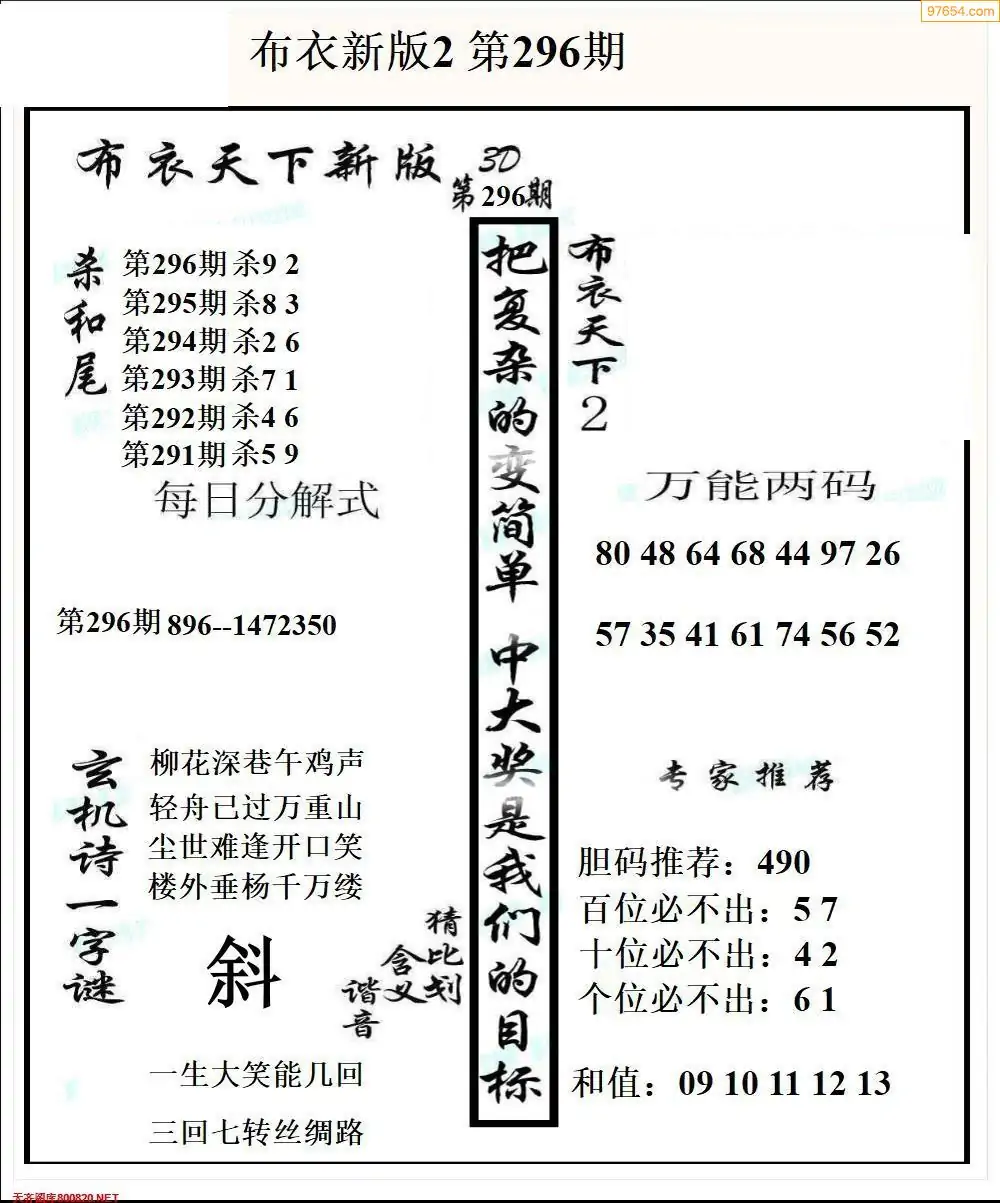 97654.com
布衣新版2 第296期
布衣天下新版
3D
第296期
杀和尾
第296期 杀9 2
第295期 杀8 3
第294期 杀2 6
第293期 杀7 1
第292期 杀4 6
第291期 杀5 9
每日分解式
第296期 896--1472350
玄机诗一字谜
柳花深巷午鸡声
轻舟已过万重山
尘世难逢开口笑
楼外垂杨千万缕
斜
猜比划
含义
谐音
一生大笑能几回
三回七转丝绸路
把复杂的变简单 中大奖是我们的目标
布衣天下2
万能两码
80 48 64 68 44 97 26
57 35 41 61 74 56 52
专家推荐
胆码推荐：490
百位必不出：5 7
十位必不出：4 2
个位必不出：6 1
和值：09 10 11 12 13
天齐图库800820.NET